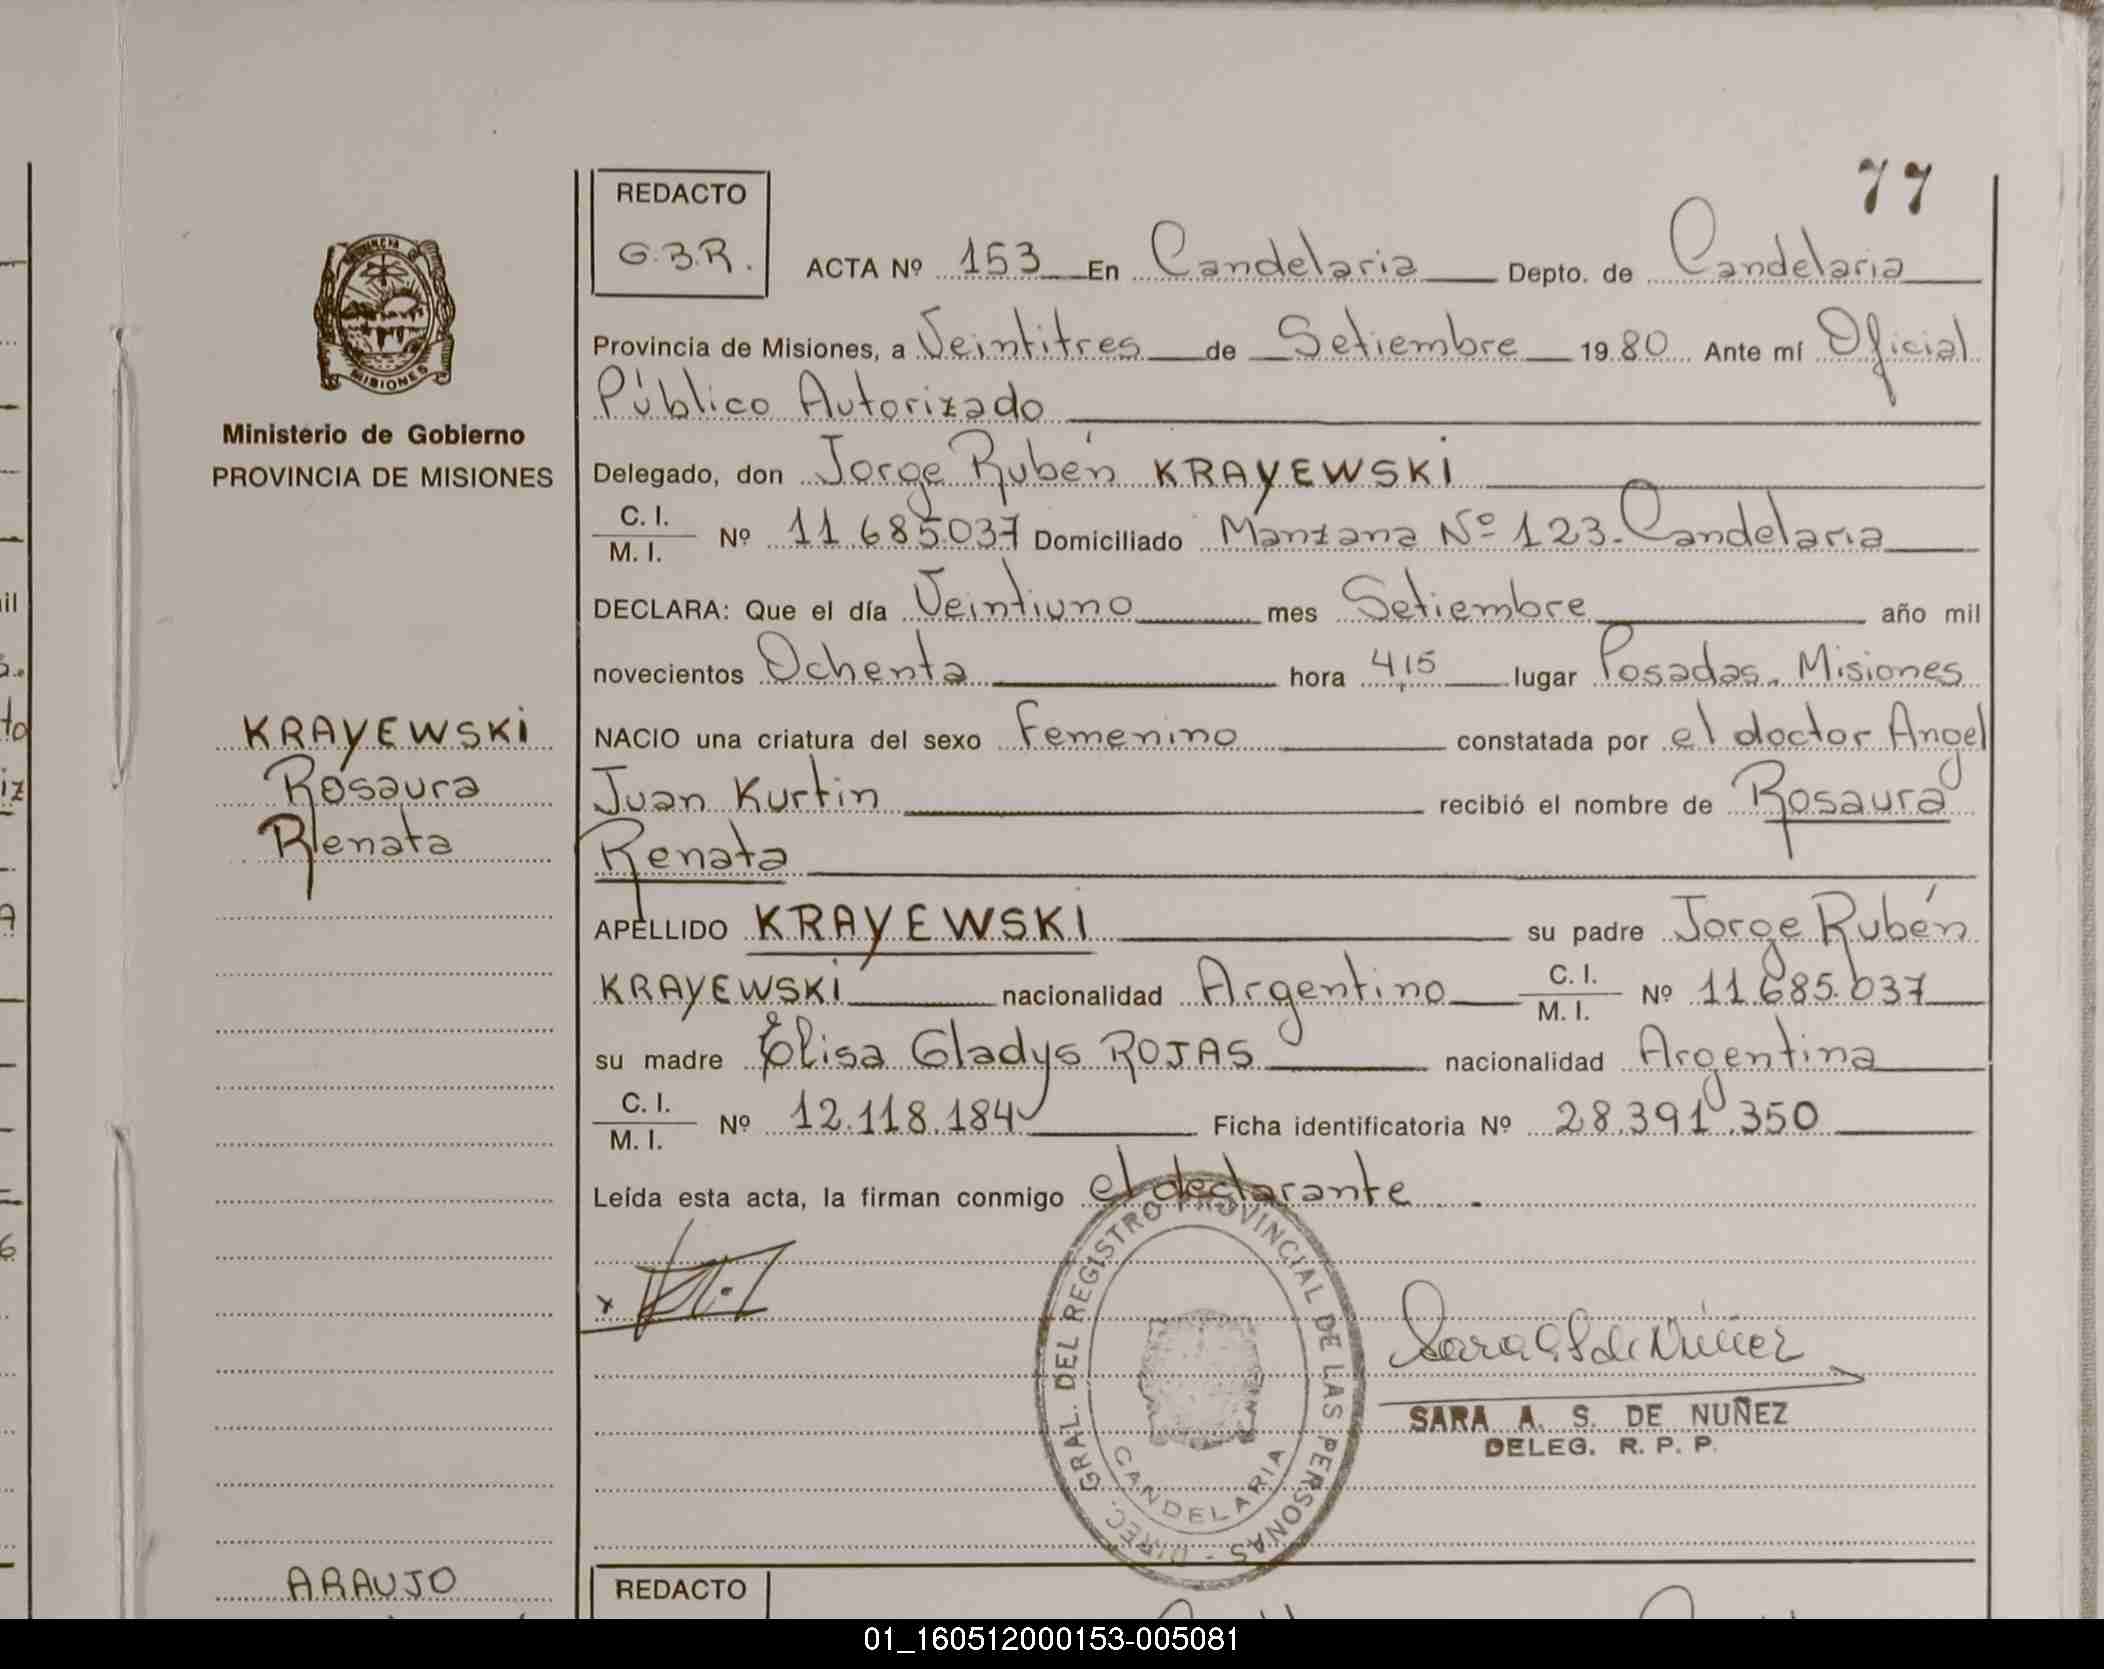 77
REDACTO
G.B.R.
ACTA Nº 153 En Candelaria Depto. de Candelaria
Provincia de Misiones, a Veintitres de Setiembre 1980 Ante mí Oficial
Público Autorizado
Delegado, don Jorge Rubén KRAYEWSKI
C. I.
M. I. Nº 11.685.037 Domiciliado Manzana Nº 123. Candelaria
DECLARA: Que el día Veintiuno mes Setiembre año mil
novecientos Ochenta hora 4,15 lugar Posadas. Misiones
NACIO una criatura del sexo Femenino constatada por el doctor Angel
Juan Kurtin recibió el nombre de Rosaura
Renata
APELLIDO KRAYEWSKI su padre Jorge Rubén
KRAYEWSKI nacionalidad Argentino C. I. M. I. Nº 11.685.037
su madre Elisa Gladys ROJAS nacionalidad Argentina
C. I.
M. I. Nº 12.118.184 Ficha identificatoria Nº 28.391.350
Leída esta acta, la firman conmigo el declarante.
DIREC. GRAL. DEL REGISTRO PROVINCIAL DE LAS PERSONAS -
CANDELARIA
Sara A S de Núñez
SARA A. S. DE NUÑEZ
DELEG. R. P. P.
MISIONES
Ministerio de Gobierno
PROVINCIA DE MISIONES
KRAYEWSKI
Rosaura
Renata
ARAUJO
REDACTO
01_160512000153-005081